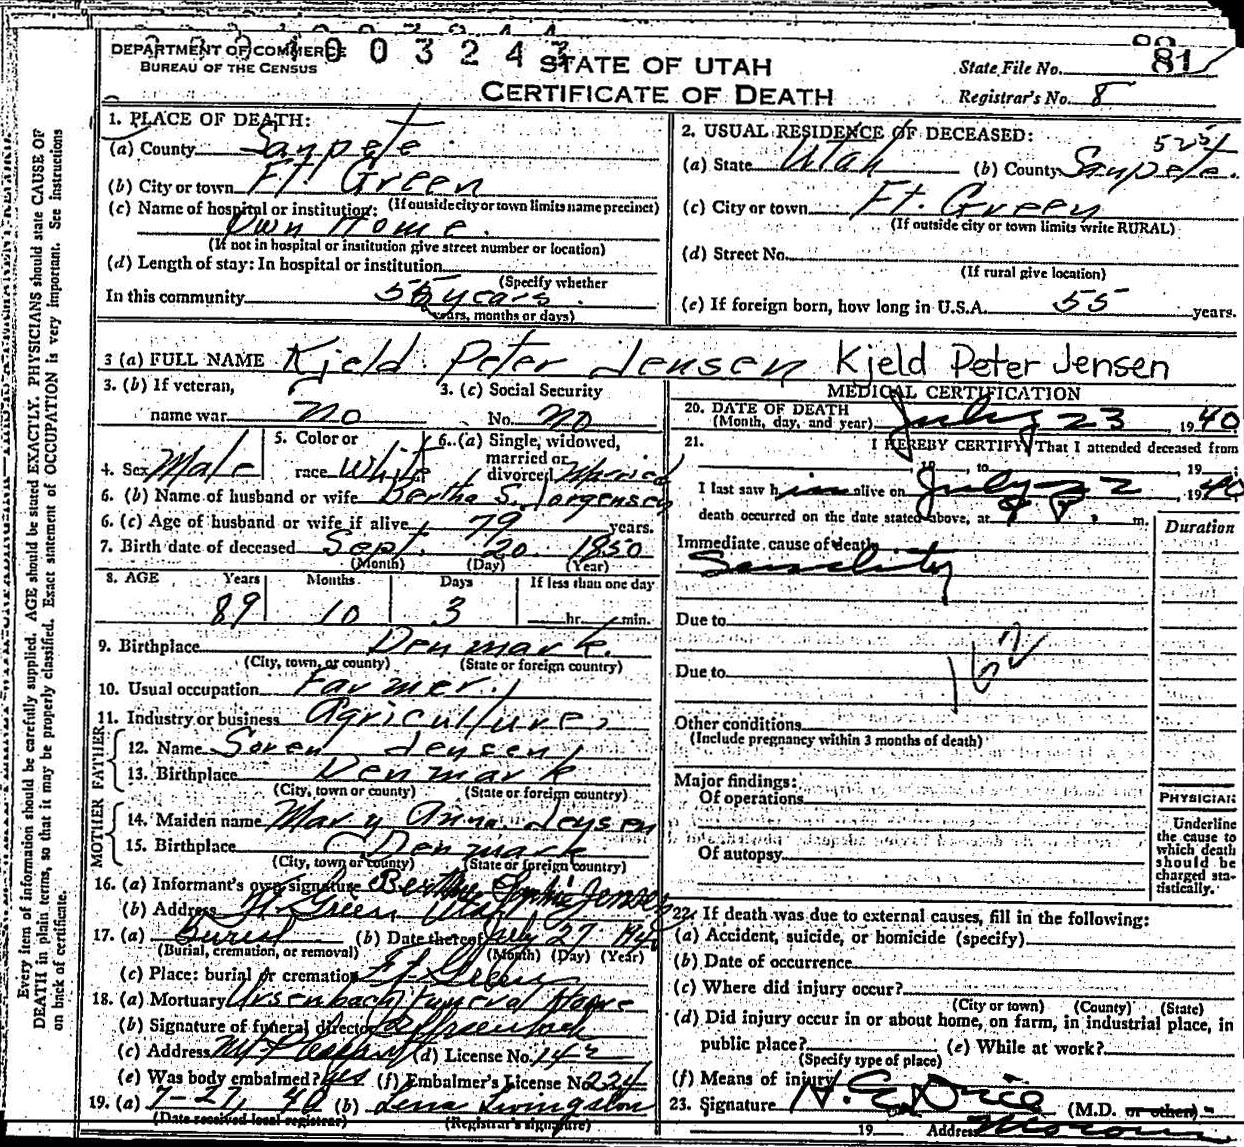 DEPARTMENT OF COMMERCE
BUREAU OF THE CENSUS
003243
STATE OF UTAH
CERTIFICATE OF DEATH
State File No. 81
Registrar's No. 8
Every item of information should be carefully supplied. AGE should be stated EXACTLY. PHYSICIANS should state CAUSE OF
DEATH in plain terms, so that it may be properly classified. Exact statement of OCCUPATION is very important. See instructions
on back of certificate.
1. PLACE OF DEATH:
(a) County Sanpete
(b) City or town Ft. Green
(If outside city or town limits name precinct)
(c) Name of hospital or institution:
Own Home
(If not in hospital or institution give street number or location)
(d) Length of stay: In hospital or institution
(Specify whether
In this community 55 years
years, months or days)
2. USUAL RESIDENCE OF DECEASED:
(a) State Utah (b) County Sanpete
(c) City or town Ft. Green
(If outside city or town limits write RURAL)
(d) Street No.
(If rural give location)
(e) If foreign born, how long in U.S.A. 55 years.
3 (a) FULL NAME Kjeld Peter Jensen Kjeld Peter Jensen
3. (b) If veteran,
name war no
3. (c) Social Security
No. no
4. Sex Male
5. Color or
race White
6. (a) Single, widowed,
married or
divorced Married
6. (b) Name of husband or wife Bertha S. Jorgensen
6. (c) Age of husband or wife if alive 79 years.
7. Birth date of deceased Sept. 20 1850
(Month) (Day) (Year)
8. AGE Years Months Days If less than one day
89 10 3 hr. min.
9. Birthplace Denmark
(City, town, or county) (State or foreign country)
10. Usual occupation Farmer
11. Industry or business Agriculture
FATHER
12. Name Soren Jensen
13. Birthplace Denmark
(City, town or county) (State or foreign country)
MOTHER
14. Maiden name Mary Anna Jensen
15. Birthplace Denmark
(City, town or county) (State or foreign country)
16. (a) Informant's own signature Bertha Sophie Jensen
(b) Address Ft. Green Utah
17. (a) Burial (b) Date thereof July 27 1940
(Burial, cremation, or removal) (Month) (Day) (Year)
(c) Place: burial or cremation Ft. Green
18. (a) Mortuary Ursenbach Funeral Home
(b) Signature of funeral director Ursenbach
(c) Address Mt. Pleasant (d) License No.
(e) Was body embalmed? yes (f) Embalmer's License No. 224
19. (a) 7-27, 40 (b) Lena Livingston
(Date received local registrar) (Registrar's signature)
MEDICAL CERTIFICATION
20. DATE OF DEATH
(Month, day, and year) July 23 1940
21. I HEREBY CERTIFY, That I attended deceased from
19 , to 19
I last saw him alive on July 22, 1940
death occurred on the date stated above, at 9 P. m.
Duration
Immediate cause of death
Senility
Due to
162
Due to
Other conditions
(Include pregnancy within 3 months of death)
Major findings:
Of operations
Of autopsy
PHYSICIAN
Underline
the cause to
which death
should be
charged sta-
tistically.
22. If death was due to external causes, fill in the following:
(a) Accident, suicide, or homicide (specify)
(b) Date of occurrence
(c) Where did injury occur?
(City or town) (County) (State)
(d) Did injury occur in or about home, on farm, in industrial place, in
public place? (e) While at work?
(Specify type of place)
(f) Means of injury
23. Signature (M.D. or other)
19 Address Moroni